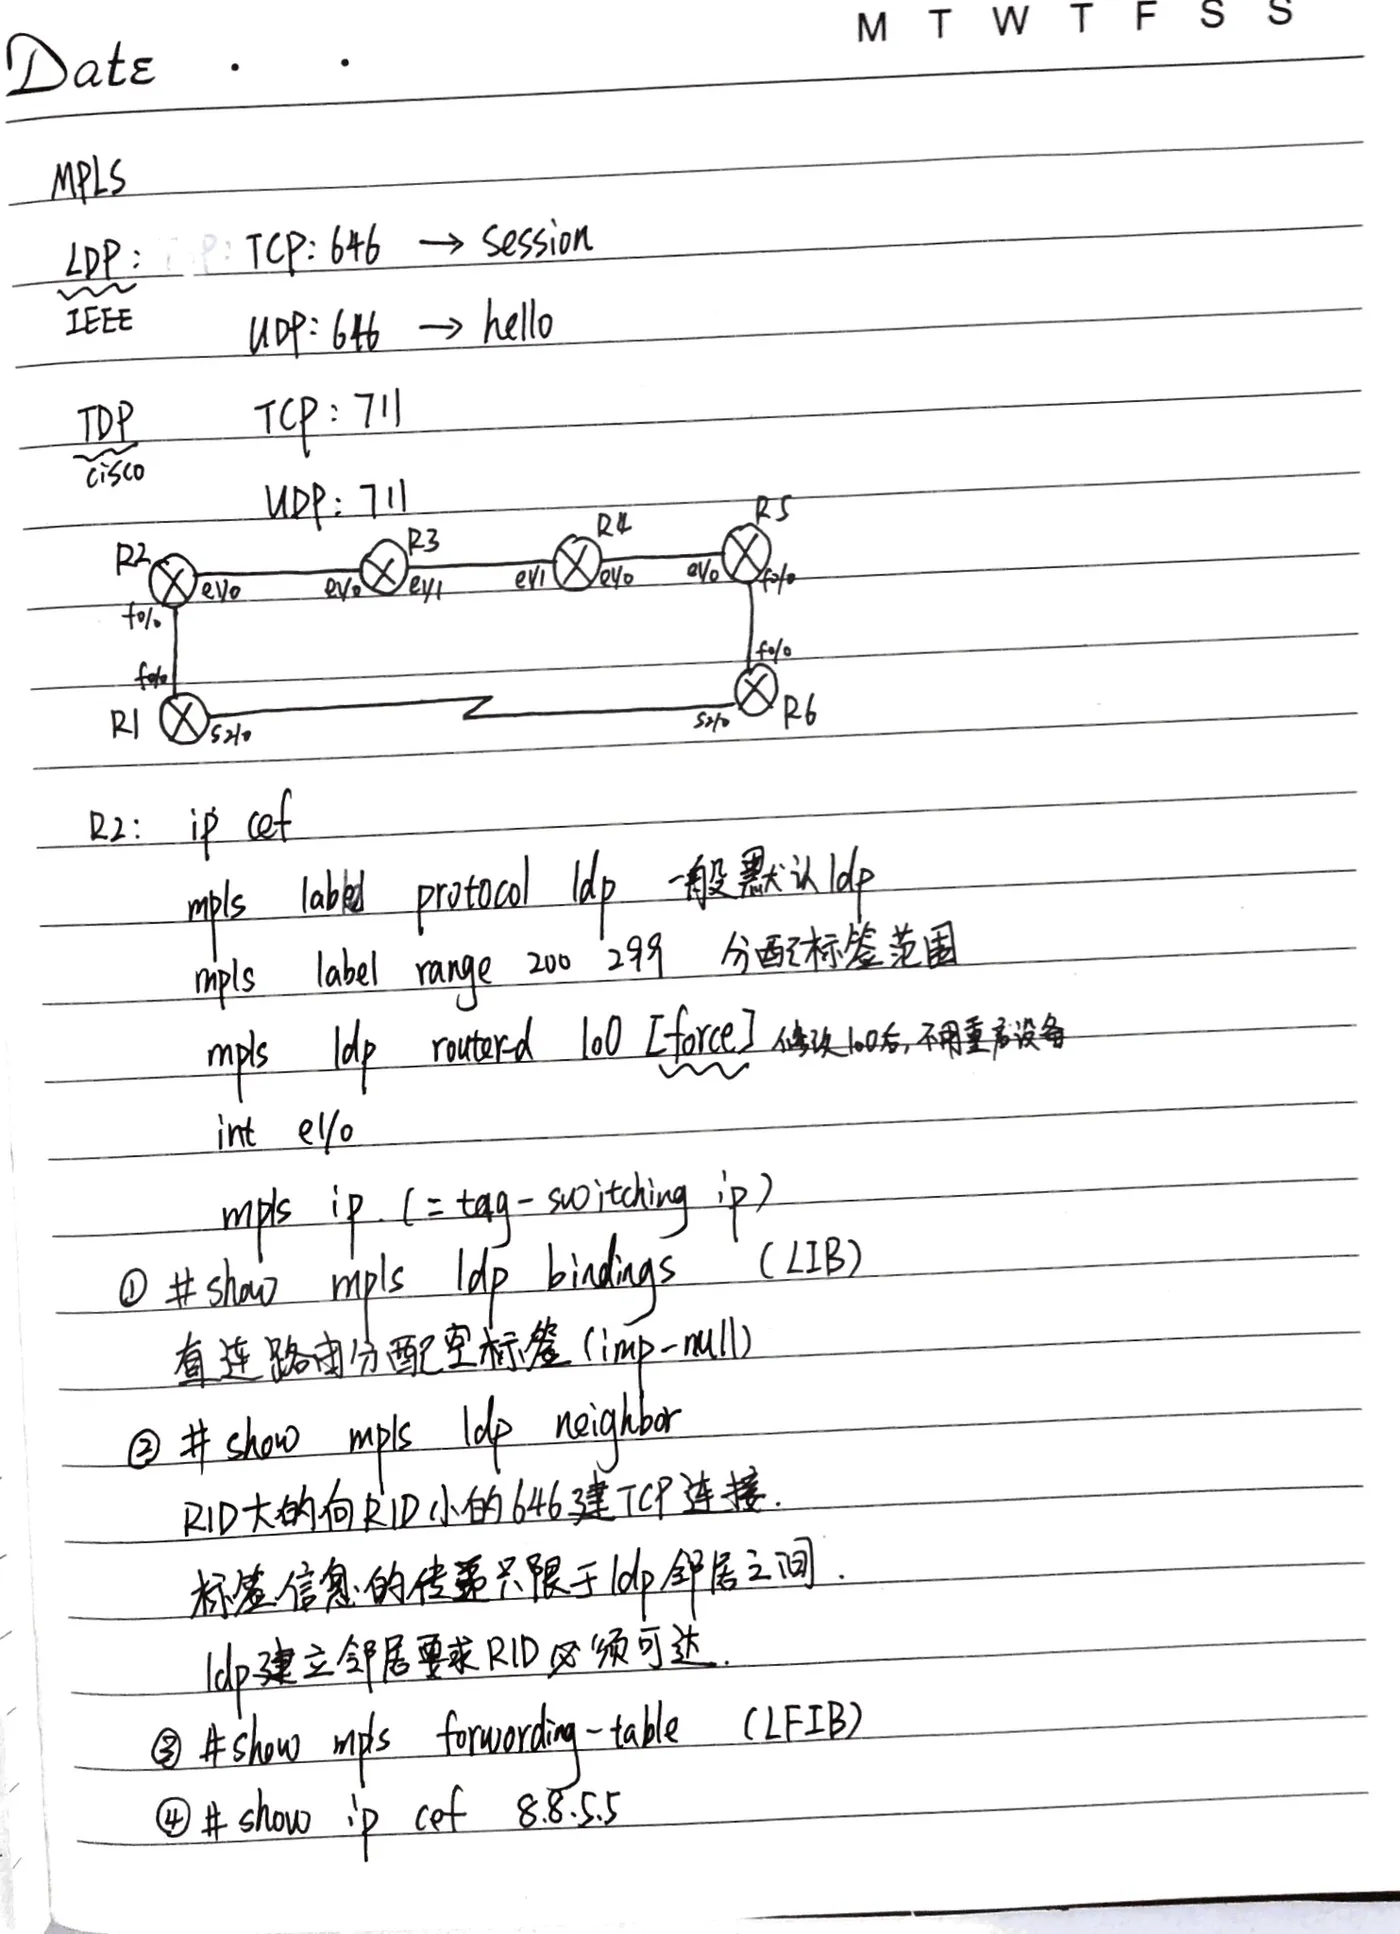 M T W T F S S
Date . .
MPLS
LDP: TCP: 646 → session
IEEE
UDP: 646 → hello
TDP TCP: 711
cisco
UDP: 711
R2 R3 R4 R5
e1/0 e1/0 e1/1 e1/1 e1/0 e1/0 f0/0
f0/0
f0/0 f0/0
R1 s2/0 s2/0 R6
R2: ip cef
mpls label protocol ldp 一般默认ldp
mpls label range 200 299 分配标签范围
mpls ldp router-d lo0 [force] 修改lo0后,不用重启设备
int e1/0
mpls ip. (=tag-switching ip)
① #show mpls ldp bindings (LIB)
直连路由分配空标签(imp-null)
② # show mpls ldp neighbor
RID大的向RID小的646建TCP连接.
标签信息的传递只限于ldp邻居之间.
ldp建立邻居要求RID必须可达.
③ #show mpls forwording-table (LFIB)
④ # show ip cef 8.8.5.5